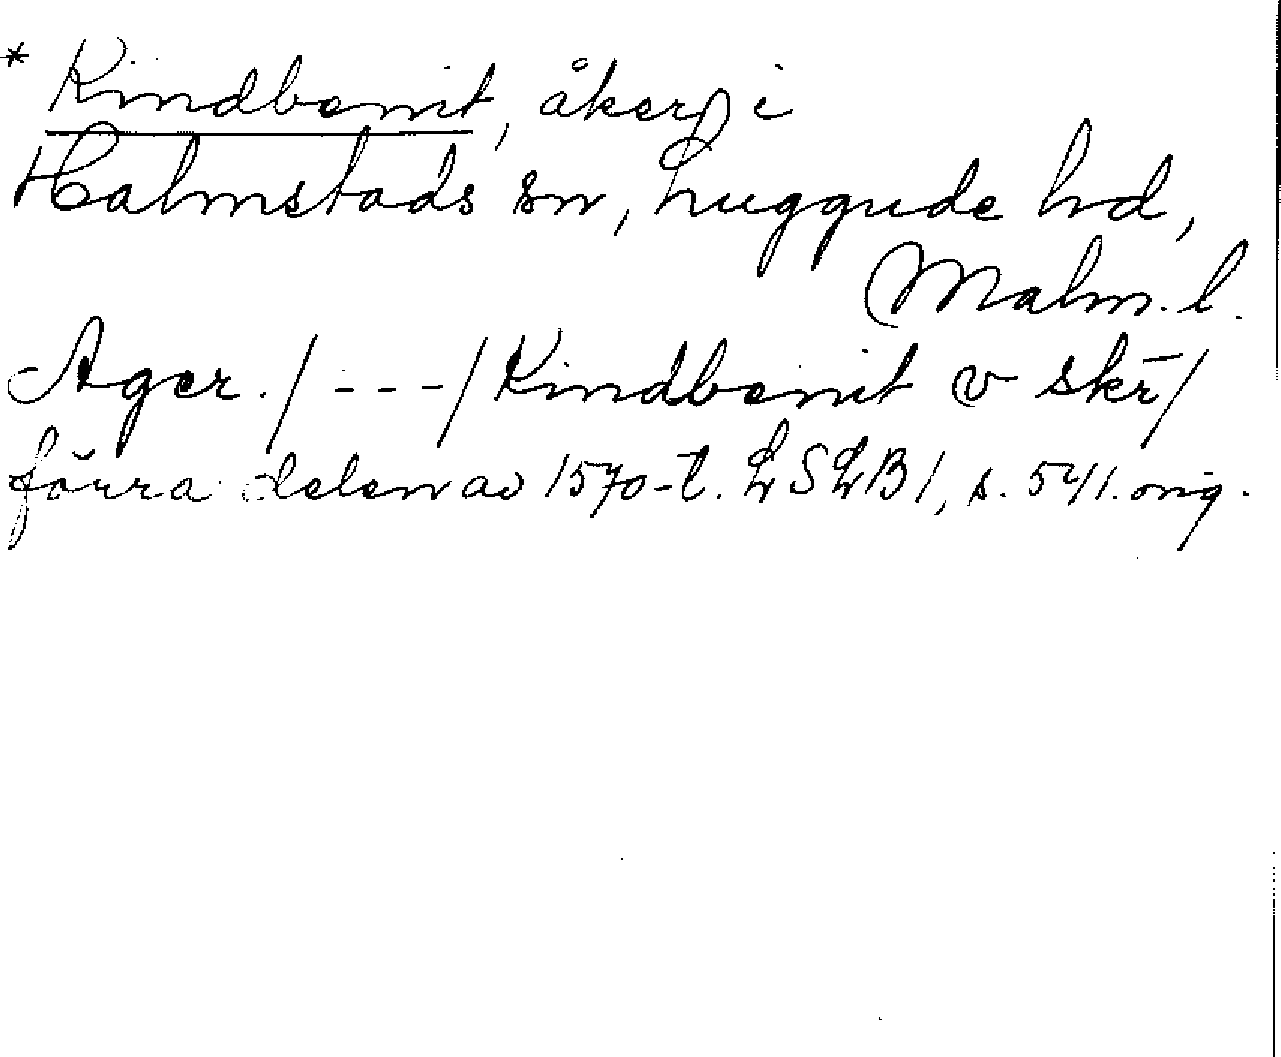 * Kindbenit, åker i
Halmstads sn, Luggude hd,
Malm. l.
Ager. / - - - / Kindbenit v skr̄ /
förra delen av 1570-t. LSLB 1, s. 541. orig.